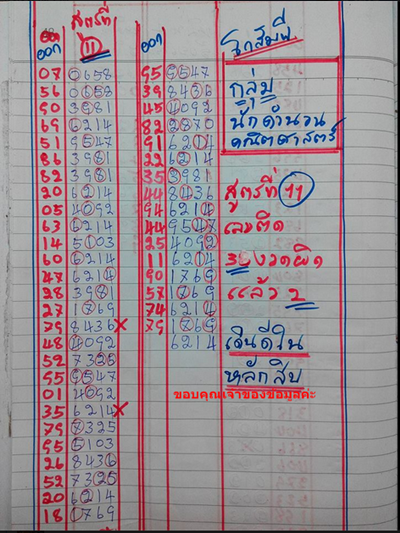 สูตรที่
11
ออก
ออก
07 0658
56 0658
90 3981
69 6214
51 9547
86 3981
82 3981
20 6214
05 4092
63 6214
14 5103
60 6214
47 6214
28 3981
27 1769
79 8436 X
48 4092
52 7325
95 9547
01 4092
35 6214 X
79 7325
95 5103
26 8436
52 7325
20 6214
18 1769
95 9547
39 8436
45 4092
82 2870
91 6214
22 6214
35 3981
44 8436
94 6214
44 9547
25 4092
11 6214
90 1769
57 1769
74 6214
79 1769
6214
กลุ่ม
นักคำนวน
คณิตศาสตร์
สูตรที่ 11
งวดผิด
แล้ว 2
เดินดีใน
หลักสิบ
ขอบคุณเจ้าของข้อมูลค่ะ